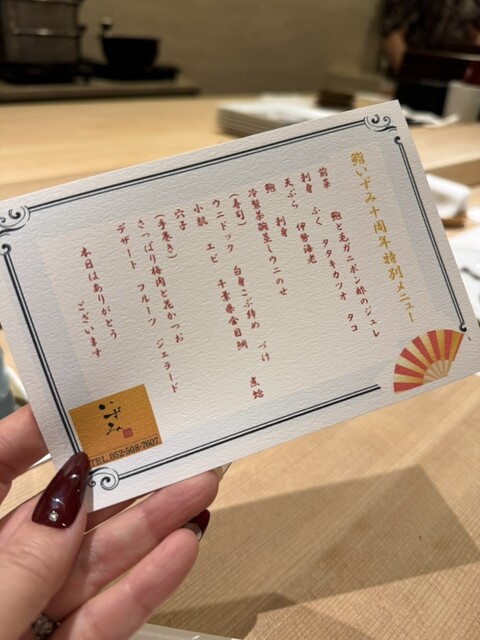 鮨いずみ十周年特別メニュー
前菜　鮑と毛ガニポン酢のジュレ
刺身　ふく　タタキカツオ　タコ
天ぷら　伊勢海老
鮑　刺身
冷製茶碗蒸しウニのせ
(寿司)　白身こぶ締め　づけ　煮蛤
ウニドック　千葉県金目鯛
小肌　エビ
穴子
(手巻き)
さっぱり梅肉と花かつお
デザート　フルーツ　ジェラード
本日はありがとう
ございます
いずみ
TEL.052-508-7607